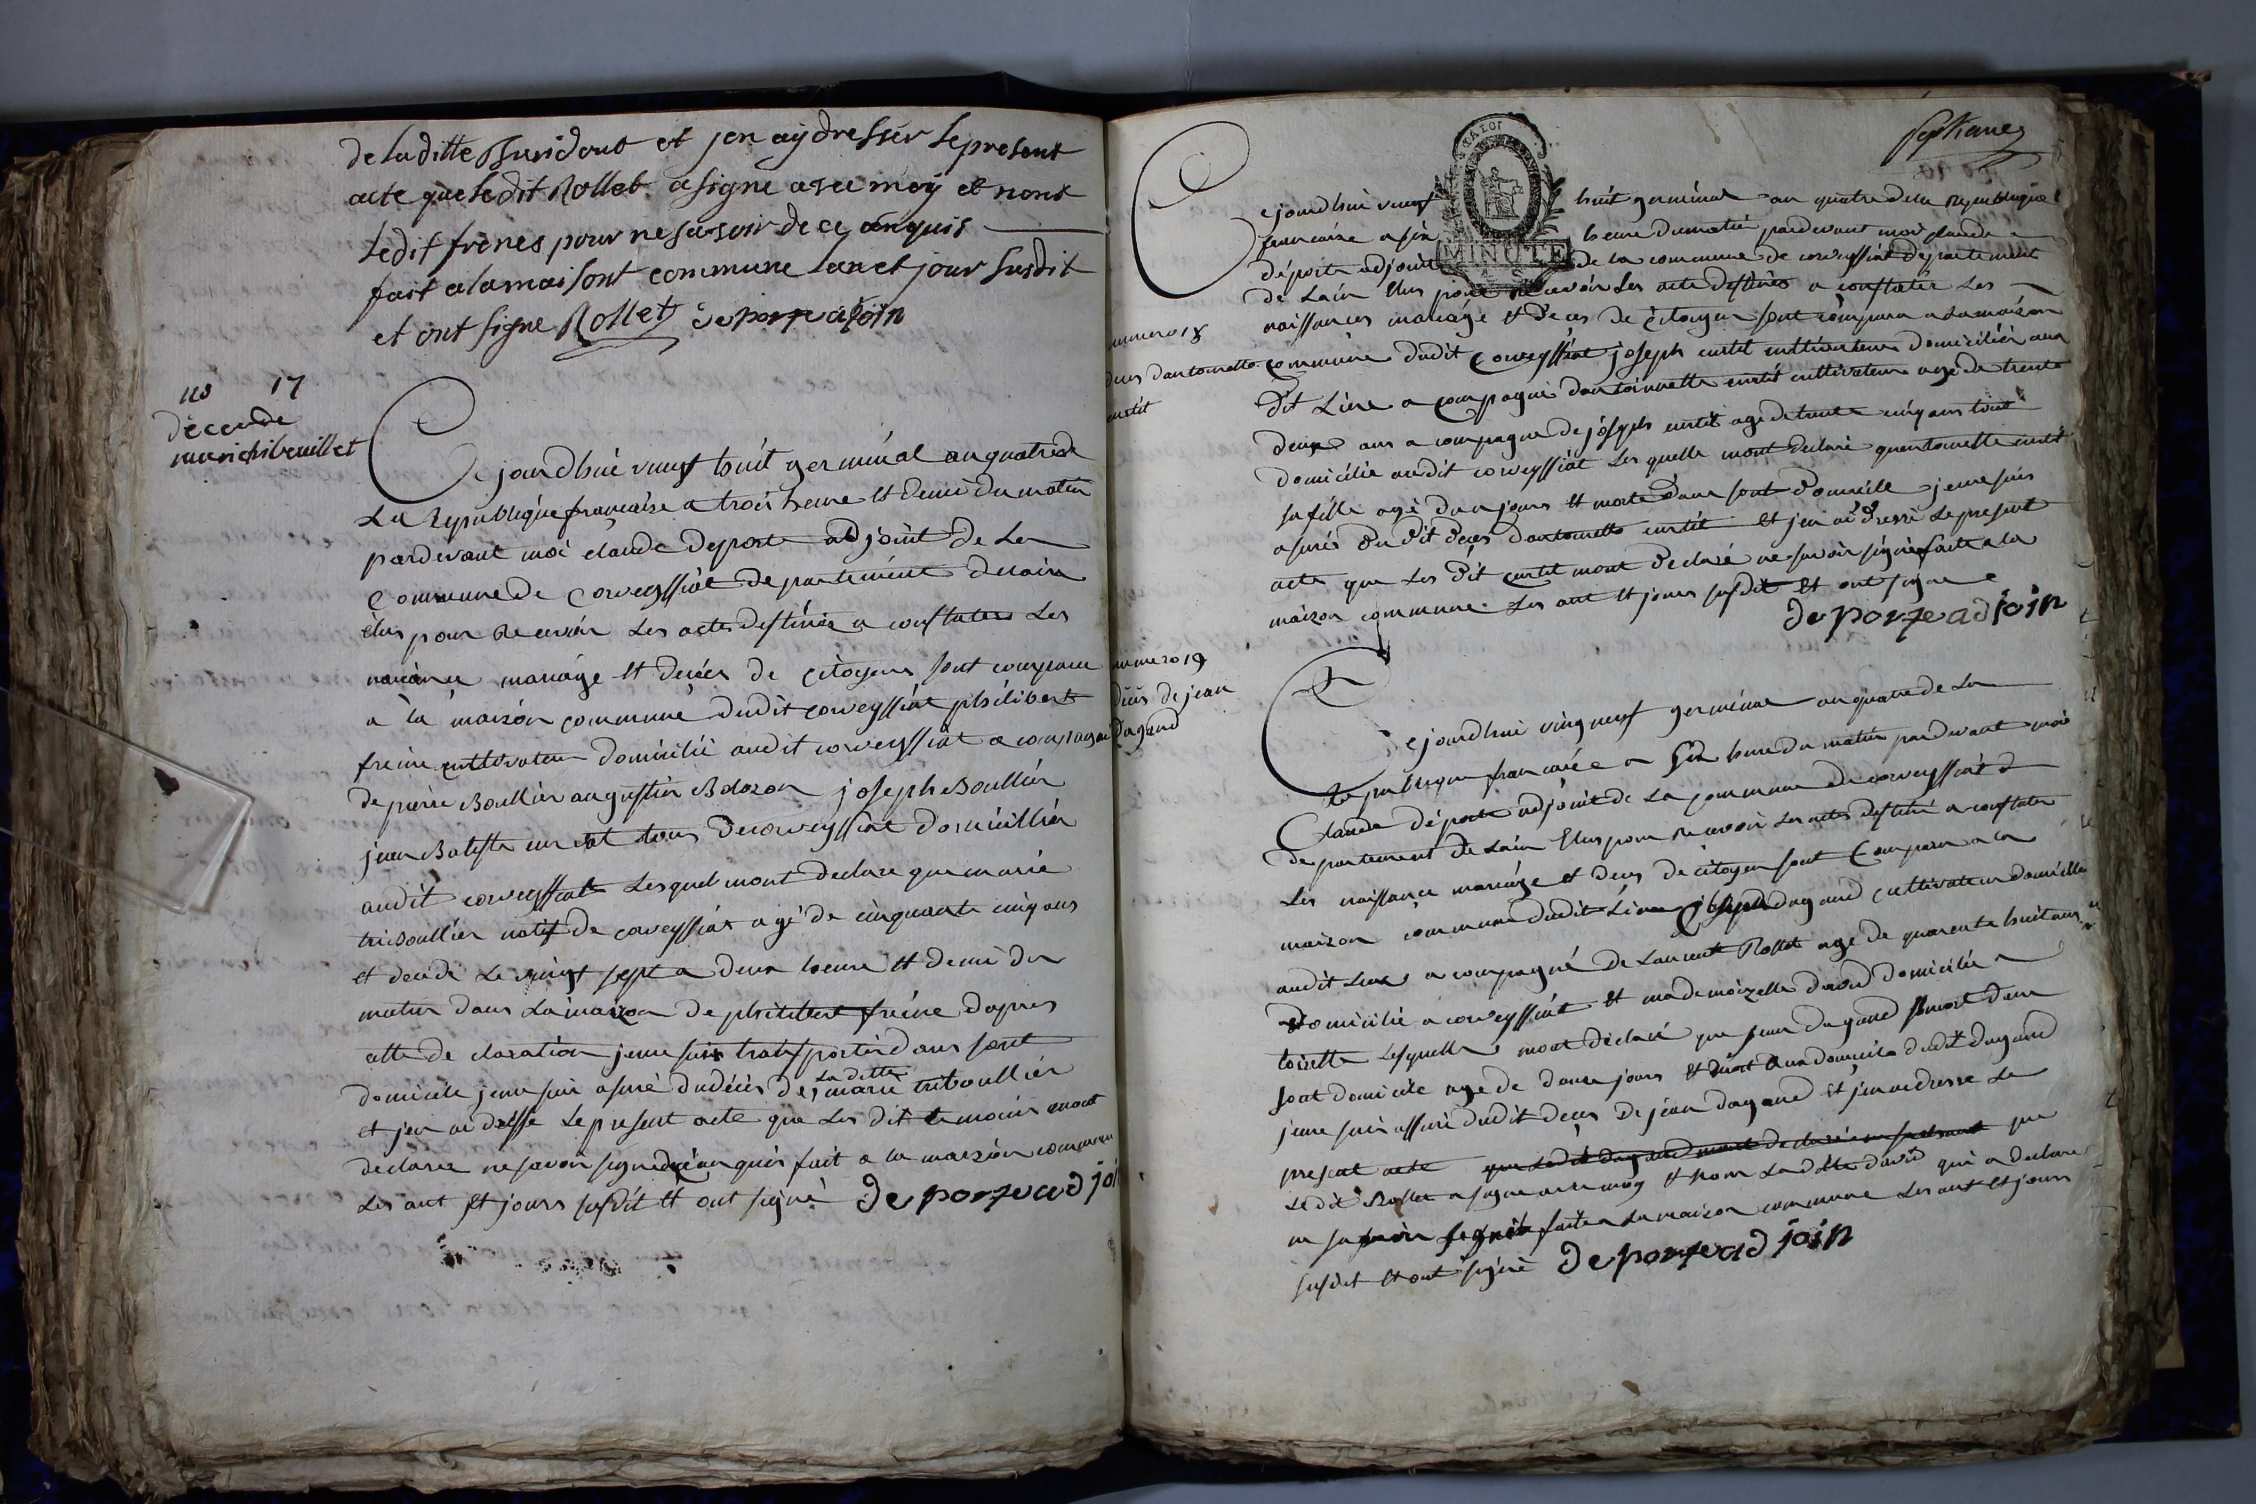 de la ditte Buridont et jen ay dresser le present
acte que ledit Rollet a signe avec moy et nont
ledit frènes pour ne savoir de ce anquis
fait a la maisont commune lan et jour susdit
et ont signe Rollet deporte adjoin
no 17
décè de
marie tribouillet
Ce jourdhui vingt huit germinal an quatre de
La Republique francaise a trois heure et demi du matin
pardevant moi claude deporte adjoint de La
Commune de Corveyssiat departement delain
élus pour Recevoir Les actes destinés a constater Les
naissance mariage et décès de citoyens sont comparu
à la maison commune dudit corveyssiat philibert
freine cultivateur domicilié audit corveyssiat a compagné
de pierre Boullier augustin Bolozon joseph Boullier
jean Batiste tous de corveyssiat domicillié
audit corveyssiat Lesquel mont declare que marie
triboullier natif de corveyssiat agé de cinquante cinq ans
et décédé Le vingt sept a deux heure et demi du
matin dans La maison de philibert freine dapres
cette declaration je me suis transporter dans sont
domicile je me suis asuré dudécès de La ditte marie triboullier
et jen ai dressé Le present acte que Les dit temoins mont
declaree ne savoir signé de ce anquis fait a la maison commune
Les ant et jours susdit et ont signé deporte adjoi
Ce jourdhui vingt huit germinal an quatre dela Republique
francaise a six heure dumatin pardevant moi claude
déporte adjoint de la commune de corveyssiat departement
MINUTE
de Lain élus pour recevoir Les acte destinés a constater Les
naissances mariage et décès de citoyen sont comparu a La maison
numero 18
décès dantoinette
curtit
commune dudit Corveyssiat joseph curtil cultivateur domicilié au
dit Lieu a compagné dantoinette curtil cultivateur agé de trente
deux ans a compagné de joseph curtil agé de trente cinq ans tout
domicilié audit corveyssiat Les quelle mont declaré quantoinette curtil
sa fille agé dun jours et morte dans sont domicile je me suis
asurés du dit décès dantoinette curtil et jen ai dressé Le present
acte que Les dit curtil mont declaré ne savoir signé fait a la
maison commune Les ant et jours susdit et ont signe
deporte adjoin
numero 19
décès de jean
Dagand
Ce jourdhui vingt neuf germinal an quatre de La
Republique francaise a six heure du matin par devant moi
Claude déporte adjoint de La commune de corveyssiat
departement de Lain élus pour recevoir Les actes destiné a constater
Les naissance mariage et décès de citoyen sont Comparu a La
maison commune dudit Lieu joseph dagand cultivateur domicillié
audit Lieu a compagné de Laurent Rollet agé de quarante huit ans
domicilié a corveyssiat et mademoizelle david domicilié a
toisette Lesquelle mont déclaré que jean dagand mort dans
sont domicile agé de douze jours et mort au domicile dudit dagand
je me suis assuré dudit décès de jean dagand et jen ai dresse Le
present acte que Ledit dagand mont declaré que
Le dit Rollet a signe avec moy et non La dite david qui a declare
ne savoir signér fait a La maison commune Les ant et jours
susdit et ont signé deporte adjoin